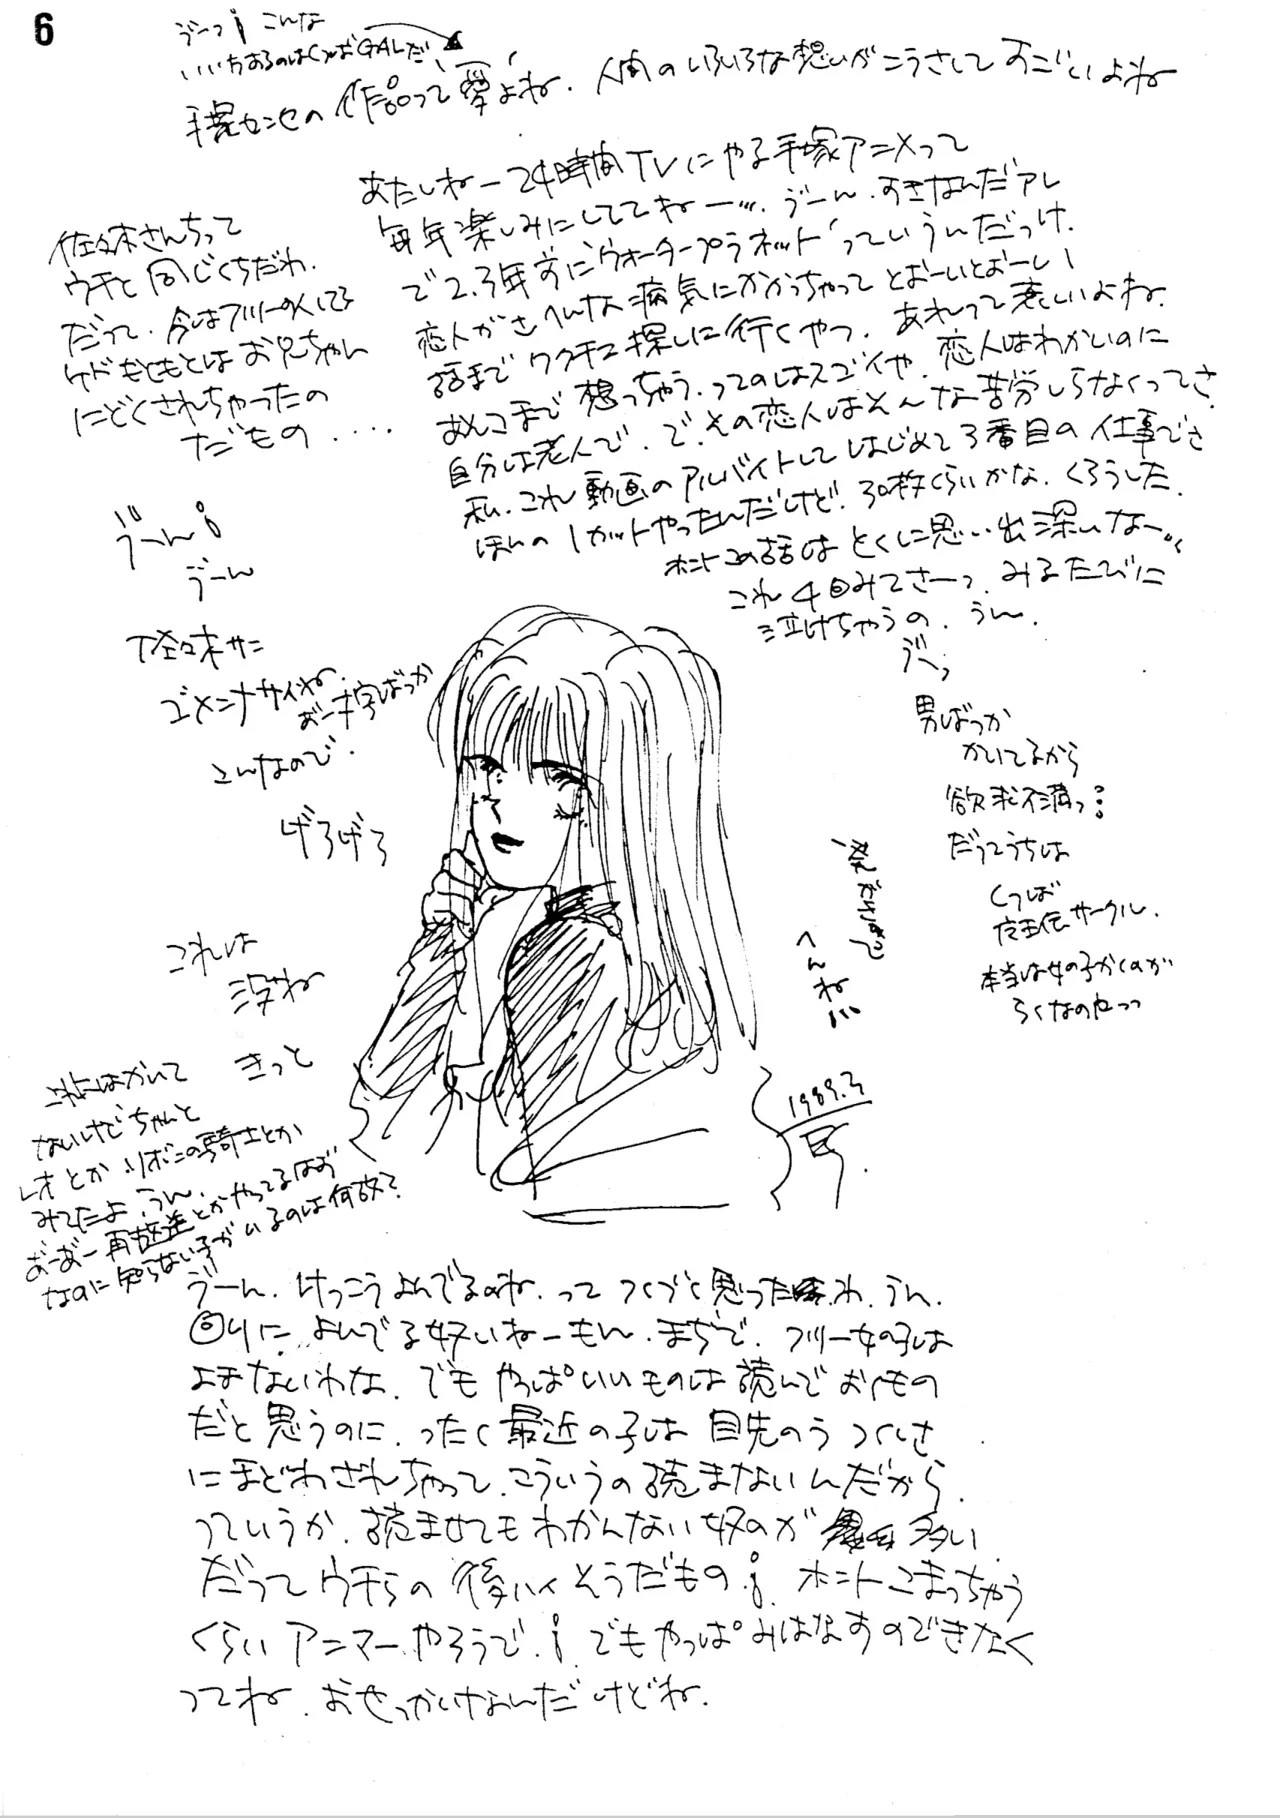 6
ゔーっ! こんな
いい方するのはくっぱGALだ!
手塚センセの作品って愛よね. 人間のいろいろな想いがこうさしてすごいよね
あたしねー24時間TVにやる手塚アニメって
毎年楽しみにしててねー…. ゔーん. すきなんだアレ
で2.3年前に"ウォータープラネット"っていうんだっけ.
恋人がさへんな病気にかかっちゃってとおーいとおーい
話までワクチン探しに行くやつ. あれって哀しいよね.
あんなまで想っちゃう. ってのはスゴイや. 恋人はわかいのに
自分は老人で. で. その恋人はそんな苦労しらなくってさ.
私. これ動画のアルバイトしてはじめて3番目の仕事でさ
ほんの1カットやったんだけど. 30枚くらいかな. くろうした.
ホントこの話はとくに思い出深いなー…
これ4回みてさーっ. みるたびに
泣けちゃうの. うん.
ゔーっ
佐々木さんちって
ウチと同じくちだわ.
だって. 今はフリーの人してる
ケドもともとはお兄ちゃん
にどくされちゃったの
だもの....
ゔーん!
ゔーん
佐々木サン
ゴメンナサイね.
おー字ばっか
こんなので.
げろげろ
これは
没ね
きっと
男ばっか
かいてるから
欲求不満っ…
だってうちは
くっぱ
サークル.
本当は女の子かくのが
らくなのよっっ
へんね
1989.3
これにはかいて
ないけどちゃんと
レオとかリボンの騎士とか
みてたよ. うん.
おーおー再放送とかやってるはず
なのに知らない子がいるのは何故?
ゔーん. けっこうよんでるのね. ってつくづく思ったわ. うん.
回りによんでる奴いねーもん. まぢで. フツー女の子は
よまないわな. でもやっぱいいものは読んでおくもの
だと思うのに. ったく最近の子は目先のうつくしさ
にまどわされちゃって. こういうの読まないんだから.
っていうか. 読ませてもわかんない奴のが多い.
だってウチらの後ハイそうだもの! ホントこまっちゃう
くらいアニマーやろうで! でもやっぱみはなすのできなく
ってね. おせっかいなんだけどね.